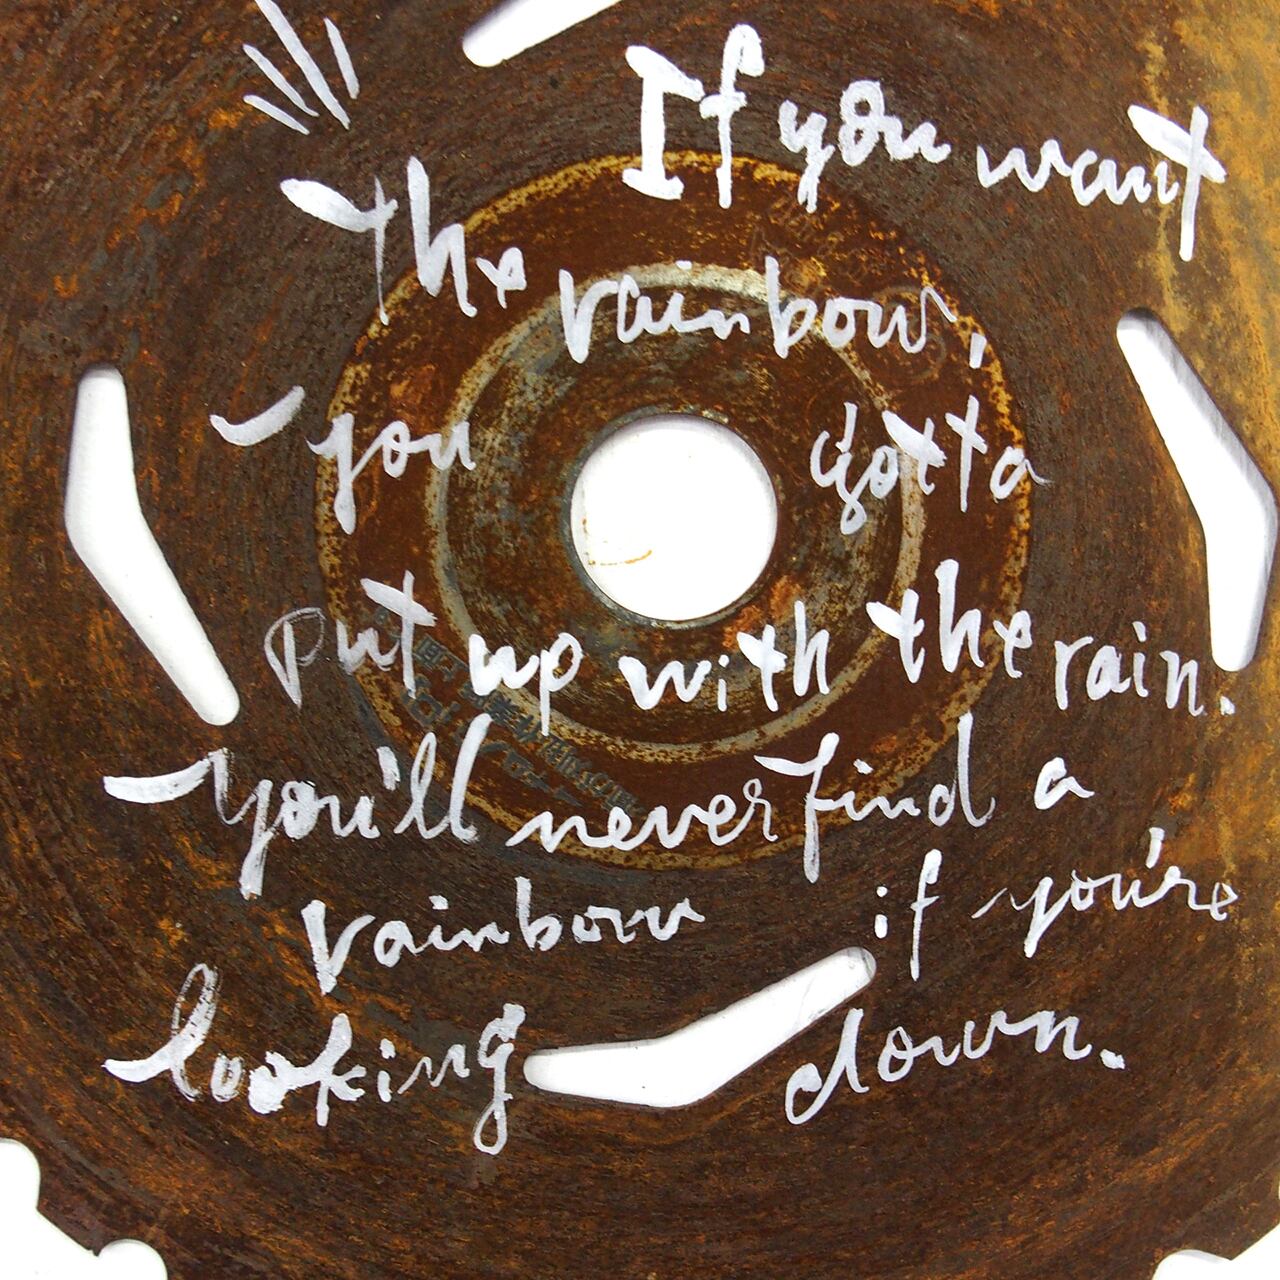 If you want
the rainbow,
you gotta
put up with the rain.
You'll never find a
rainbow if you're
looking down.